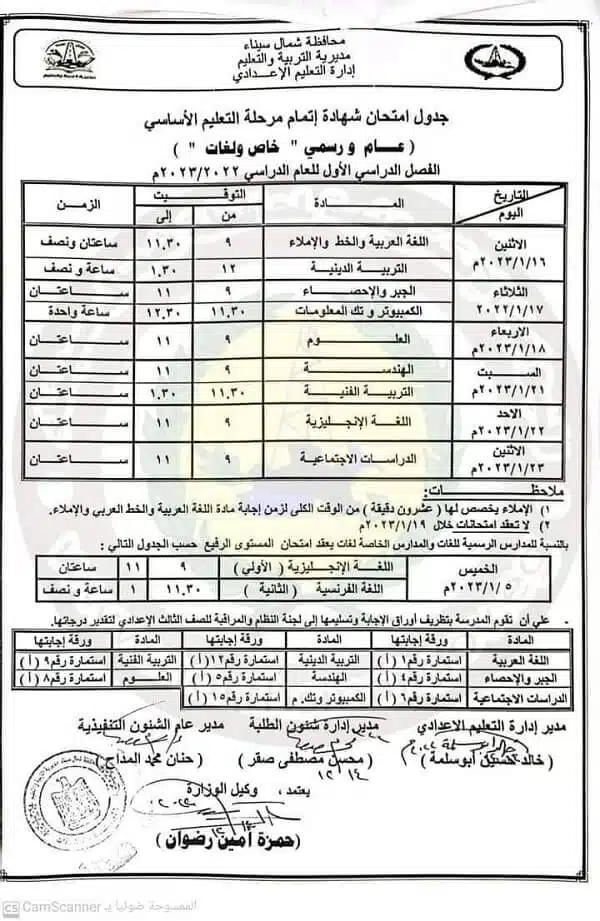 محافظة شمال سيناء
مديرية التربية والتعليم
إدارة التعليم الإعدادي
جدول امتحان شهادة إتمام مرحلة التعليم الأساسي
( عـــام ورسمي " خاص ولغات " )
الفصل الدراسي الأول للعام الدراسي ٢٠٢٣/٢٠٢٢م
التاريخ اليوم المـــادة التوقيت من إلى الزمن
الاثنين ٢٠٢٣/١/١٦م اللغة العربية والخط والإملاء ٩ ١١.٣٠ ساعتان ونصف
التربية الدينية ١٢ ١.٣٠ ساعة و نصف
الثلاثاء ٢٠٢٢/١/١٧ الجبر والإحصاء ٩ ١١ ساعتان
الكمبيوتر و تك المعلومات ١١.٣٠ ١٢.٣٠ ساعة واحدة
الاربعاء ٢٠٢٣/١/١٨م العلوم ٩ ١١ ساعتان
السبت ٢٠٢٣/١/٢١م الهندسة ٩ ١١ ساعتان
التربية الفنية ١١.٣٠ ١.٣٠ ساعتان
الاحد ٢٠٢٣/١/٢٢م اللغة الإنجليزية ٩ ١١ ساعتان
الاثنين ٢٠٢٣/١/٢٣م الدراسات الاجتماعية ٩ ١١ ساعتان
ملاحظات:
١) الإملاء يخصص لها ( عشرون دقيقة ) من الوقت الكلى لزمن إجابة مادة اللغة العربية والخط العربي والإملاء.
٢) لا تعقد امتحانات خلال ٢٠٢٣/١/١٩م
بالنسبة للمدارس الرسمية للغات والمدارس الخاصة لغات يعقد امتحان المستوى الرفيع حسب الجدول التالي :
الخميس ٢٠٢٣/١/٥م اللغة الإنجليزية ( الأولي ) ٩ ١١ ساعتان
اللغة الفرنسية ( الثانية ) ١١.٣٠ ١ ساعة و نصف
- علي أن تقوم المدرسة بتظريف أوراق الإجابة وتسليمها إلى لجنة النظام والمراقبة للصف الثالث الإعدادي لتقدير درجاتها.
المادة ورقة إجابتها المادة ورقة إجابتها المادة ورقة إجابتها
اللغة العربية استمارة رقم١ ( أ ) التربية الدينية استمارة رقم١٢ ( أ ) التربية الفنية استمارة رقم٩ ( أ )
الجبر والإحصاء استمارة رقم٤ ( أ ) الهندسة استمارة رقم٥ ( أ ) العلوم استمارة رقم٨ ( أ )
الدراسات الاجتماعية استمارة رقم٦ ( أ ) الكمبيوتر وتك. م استمارة رقم١٥ ( أ )
مدير إدارة التعليم الاعدادي مدير إدارة شئون الطلبة مدير عام الشئون التنفيذية
( خالد حسنين أبوسلمة ) ( محسن مصطفى صقر ) ( حنان محمد المداح )
١٢/١٤
يعتمد ، وكيل الوزارة
(حمزة أمين رضوان )
CS CamScanner الممسوحة ضوئيا بـ